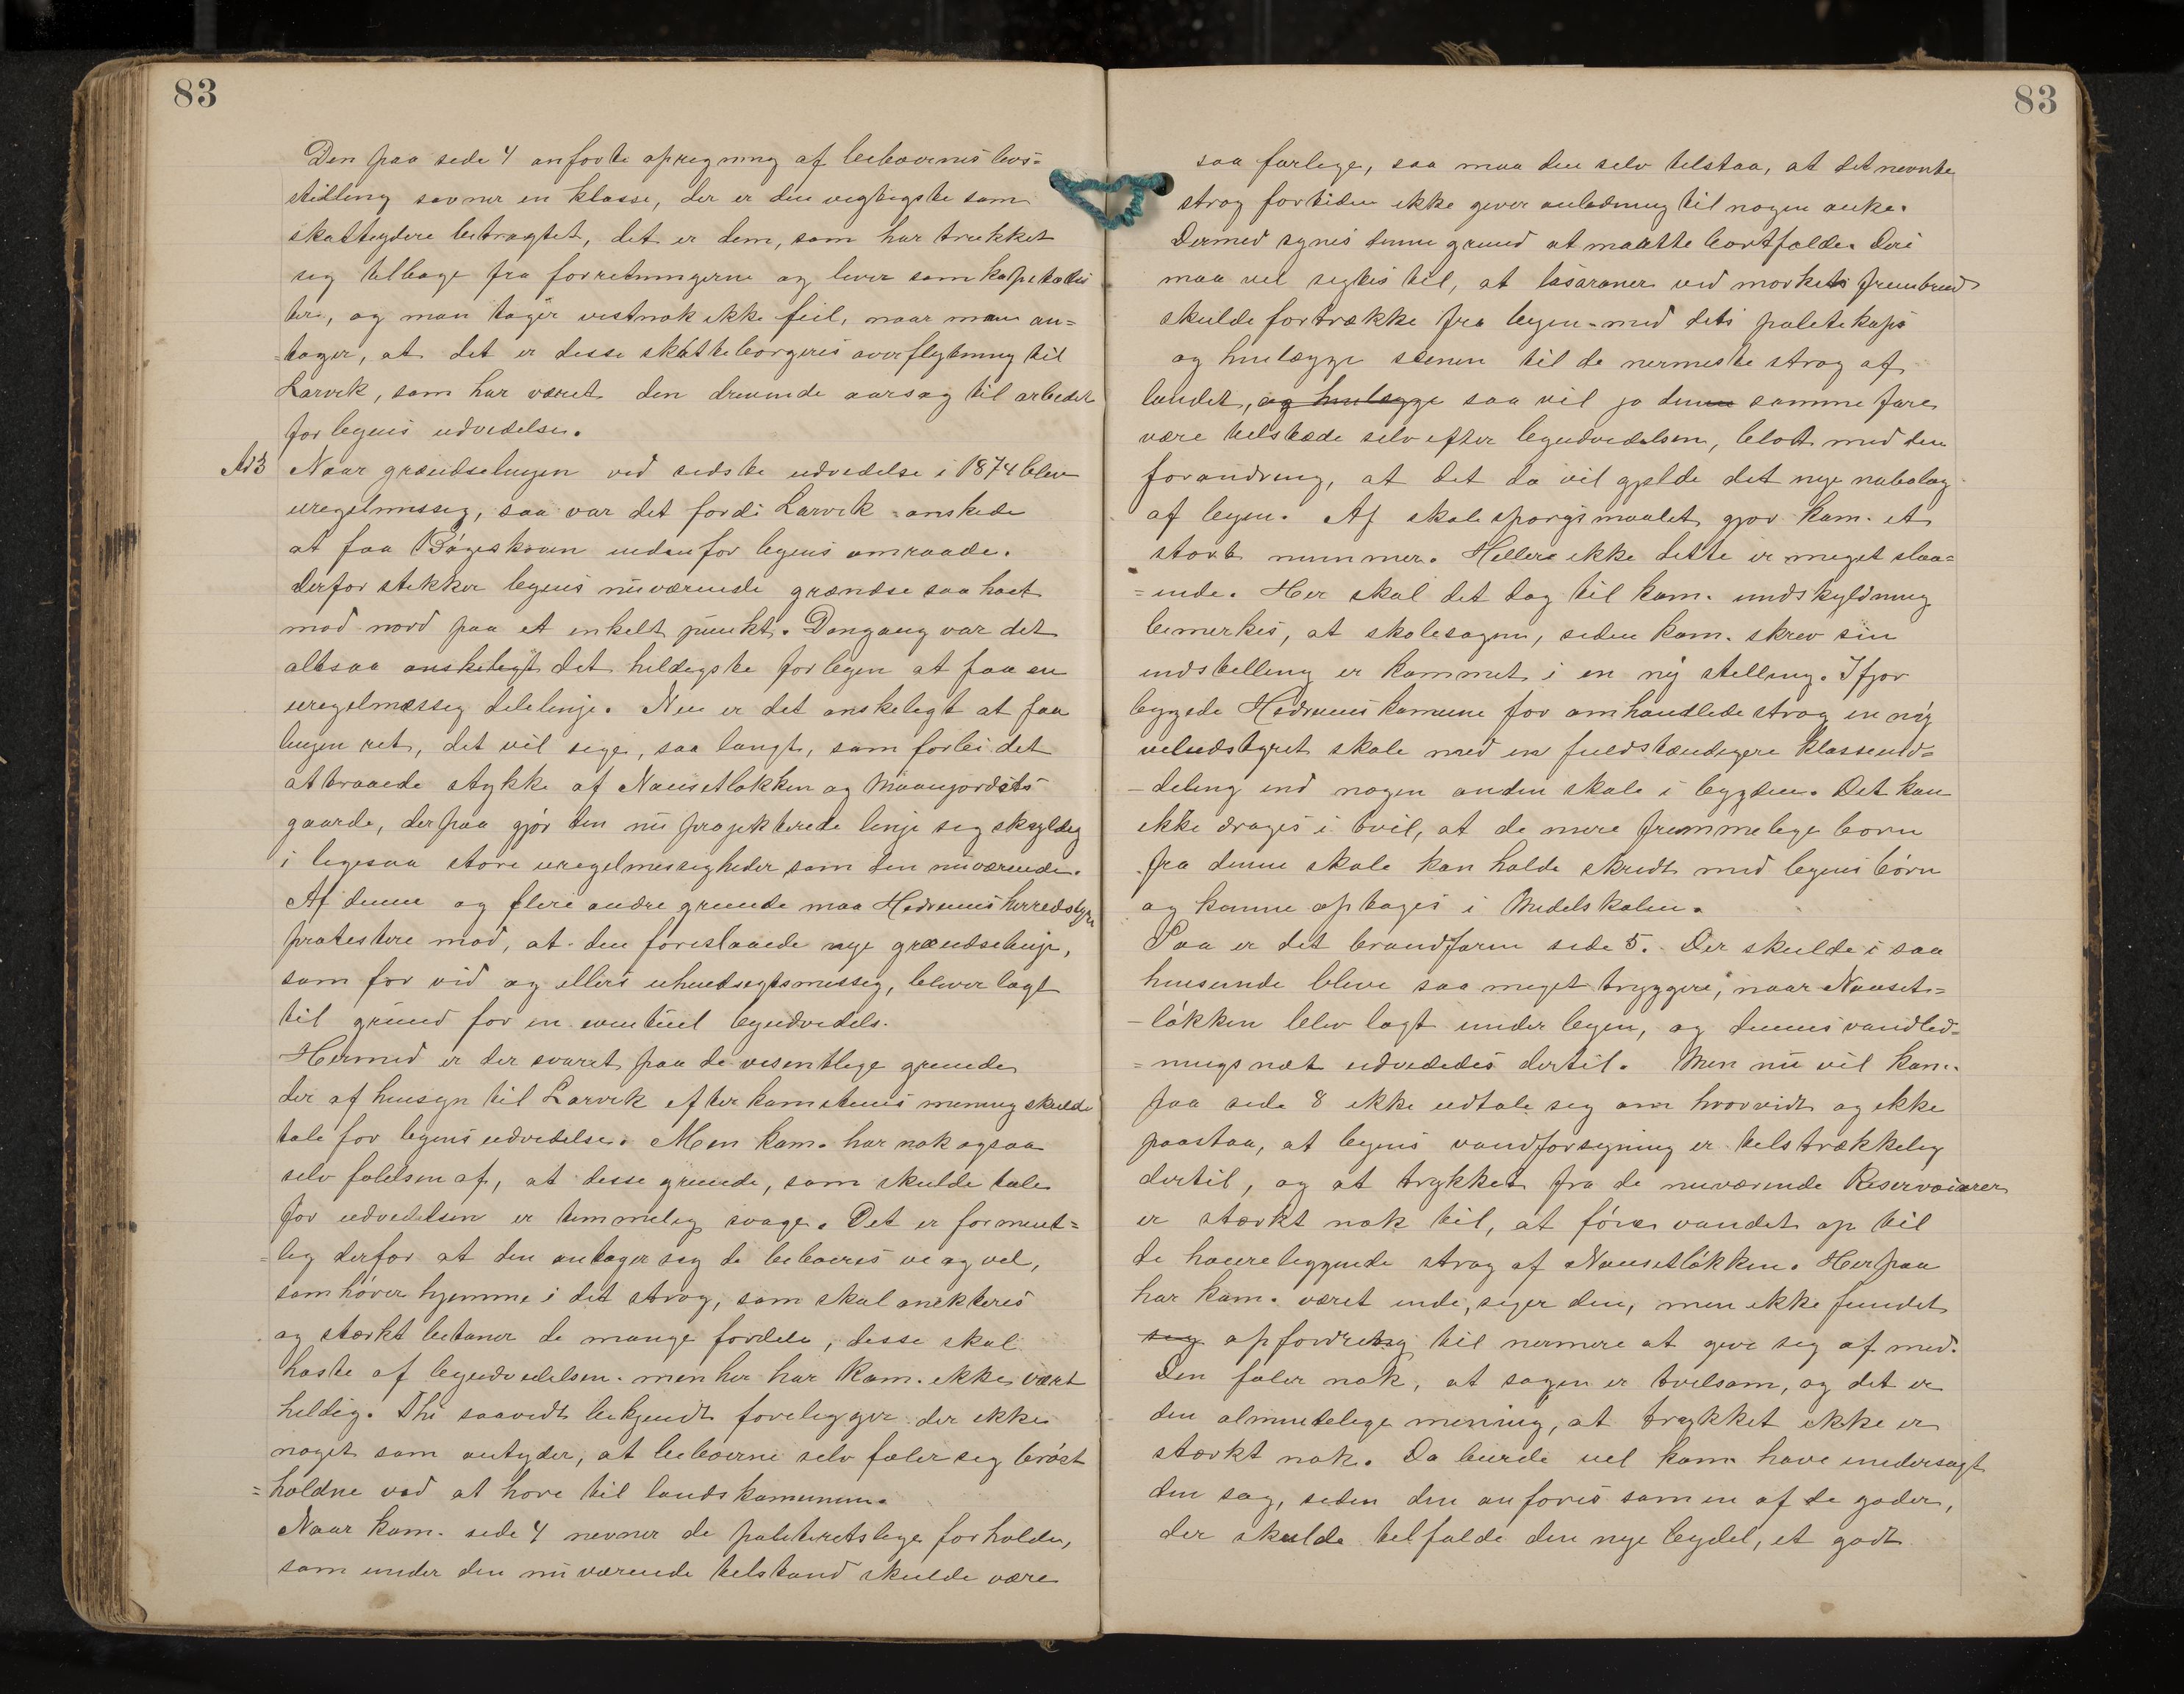 83
Den paa sede 4 anforte opregning af beboernes livs=
stilling savner en klasse, der er den vegtegste som
skatteydere betragtet, det er dem, som har trukket
seg telbage fra forretningerne og lever som kapetalis
ter, og man tager vestnok ikke feil, naar man an=
=tager, at det er desse skatteborgeres overflytning til
Larvek, som har været den drevende aarsag til arbedet
for byens udvedelse.
Ad 3 Naar grændselinjen ved sedste udvedelse i 1874 blev
uregelmessig, saa var det fordi Larvek ønskede
at faa Bøgeskoven indenfor byens omraade.
Derfor stekker byens nuværende grændse saa høit
mod nord paa et enkelt punkt. Dengang var det
altsaa ønskelegt det heldegste for byen at faa en
uregelmæsseg delelinje. Nu er det ønskelegt at faa
linjen ret, det vil sege, saa langt, som forbi det
attraaede stykke af Nansetløkken og Maanejordets
gaarde, derpaa gjør den nu projekterede linje seg skyldeg
i legesaa store uregelmessegheder som den nuværende.
Af denne og flere andre grunde maa Hedrums herredstyre
protestere mod, at den foreslaaede nye grændselinje,
som for vid og ellers uhensegtsmesseg, blever lagt
til grund for en eventuel byudvedels.
Hermed er der svaret paa de vesentlege grunde,
der af hensyn til Larvek efter kometeens mening skulde
tale for byens udvedelse. Men kom. har nok ogsaa
selv følelsen af, at desse grunde, som skulde tale
for udvedelsen er temmeleg svage. Det er forment=
=leg derfor at den antager seg de beboeres ve og vel,
som hører hjemme i det strøg, som skal anekteres
og stærkt betoner de mange fordele, desse skal
høste af byudvedelsen. men her har kom. ikke vært
heldig. Thi saavedt bekjendt foreligger der ikke
noget som antyder, at beboerne selv føler seg brøst
=holdne ved at høre til landskommunen.
Naar kom. sede 4 nevner de politeretslege forholde,
som under den nuværende telstand skulde være
83
saa farlege, saa maa den selv telstaa, at det nevnte
strøg fortiden ikke gever anledning til nogen anke.
Dermed synes denne grund at maatte bortfalde. Deri
maa vel segtes til, at lasaroner ved mørkets frembrud
skulde fortrække fra byen med dets politekaps
og henlægge scenen til de nermeste strøg af
landet, og henlægge saa vil jo denne samme fare
være telstede selv efter byudvedelsen, blot med den
forandring, at det da vil gjelde det nye nabolag
af byen. Af skolespørgsmaalet gjør kom. et
stort nummer. Hellere ikke dette er meget slaa=
=ende. Her skal det dog til kom. undskyldning
bemerkes, at skolesagen, seden kom. skrev sin
indstelling er kommet i en ny stelling. Ifjor
byggede Hedrums komune for omhandlede strøg en ny
veludstyret skole med en fuldstændegere klasseind=
=deling end nogen anden skole i bygden. Det kan
ikke drages i tvil, at de mere fremmelege børn
fra denne skole kan holde skridt med byens børn
og kunne optages i Medelskolen.
Saa er det brandfaren sede 5. Der skulde i saa
henseende bleve saa meget tryggere, naar Nanset=
=løkken blev lagt under byen, og dennes vandled=
=nings net udvededes dertil. Men nu vil kom.
paa sede 8 ikke udtale seg om hvorvidt og ikke
paastaa, at byens vandforsyning er telstrækkeleg
dertil, og at trykket fra de nuværende Reservoiarer
er stærkt nok til, at føre vandet op til
de høiereleggende strøg af Nansetløkken. Herpaa
har kom. været inde, seger den, men ikke fundet
seg opfordret seg til nermere at geve seg af med.
Den føler nok, at sagen er tvelsom, og det er
den almendelege mening, at trykket ikke er
stærkt nok. Da burde vel kom have undersøgt
den sag, seden den anføres som en af de goder,
der skulde telfalde den nye bydel, et godt